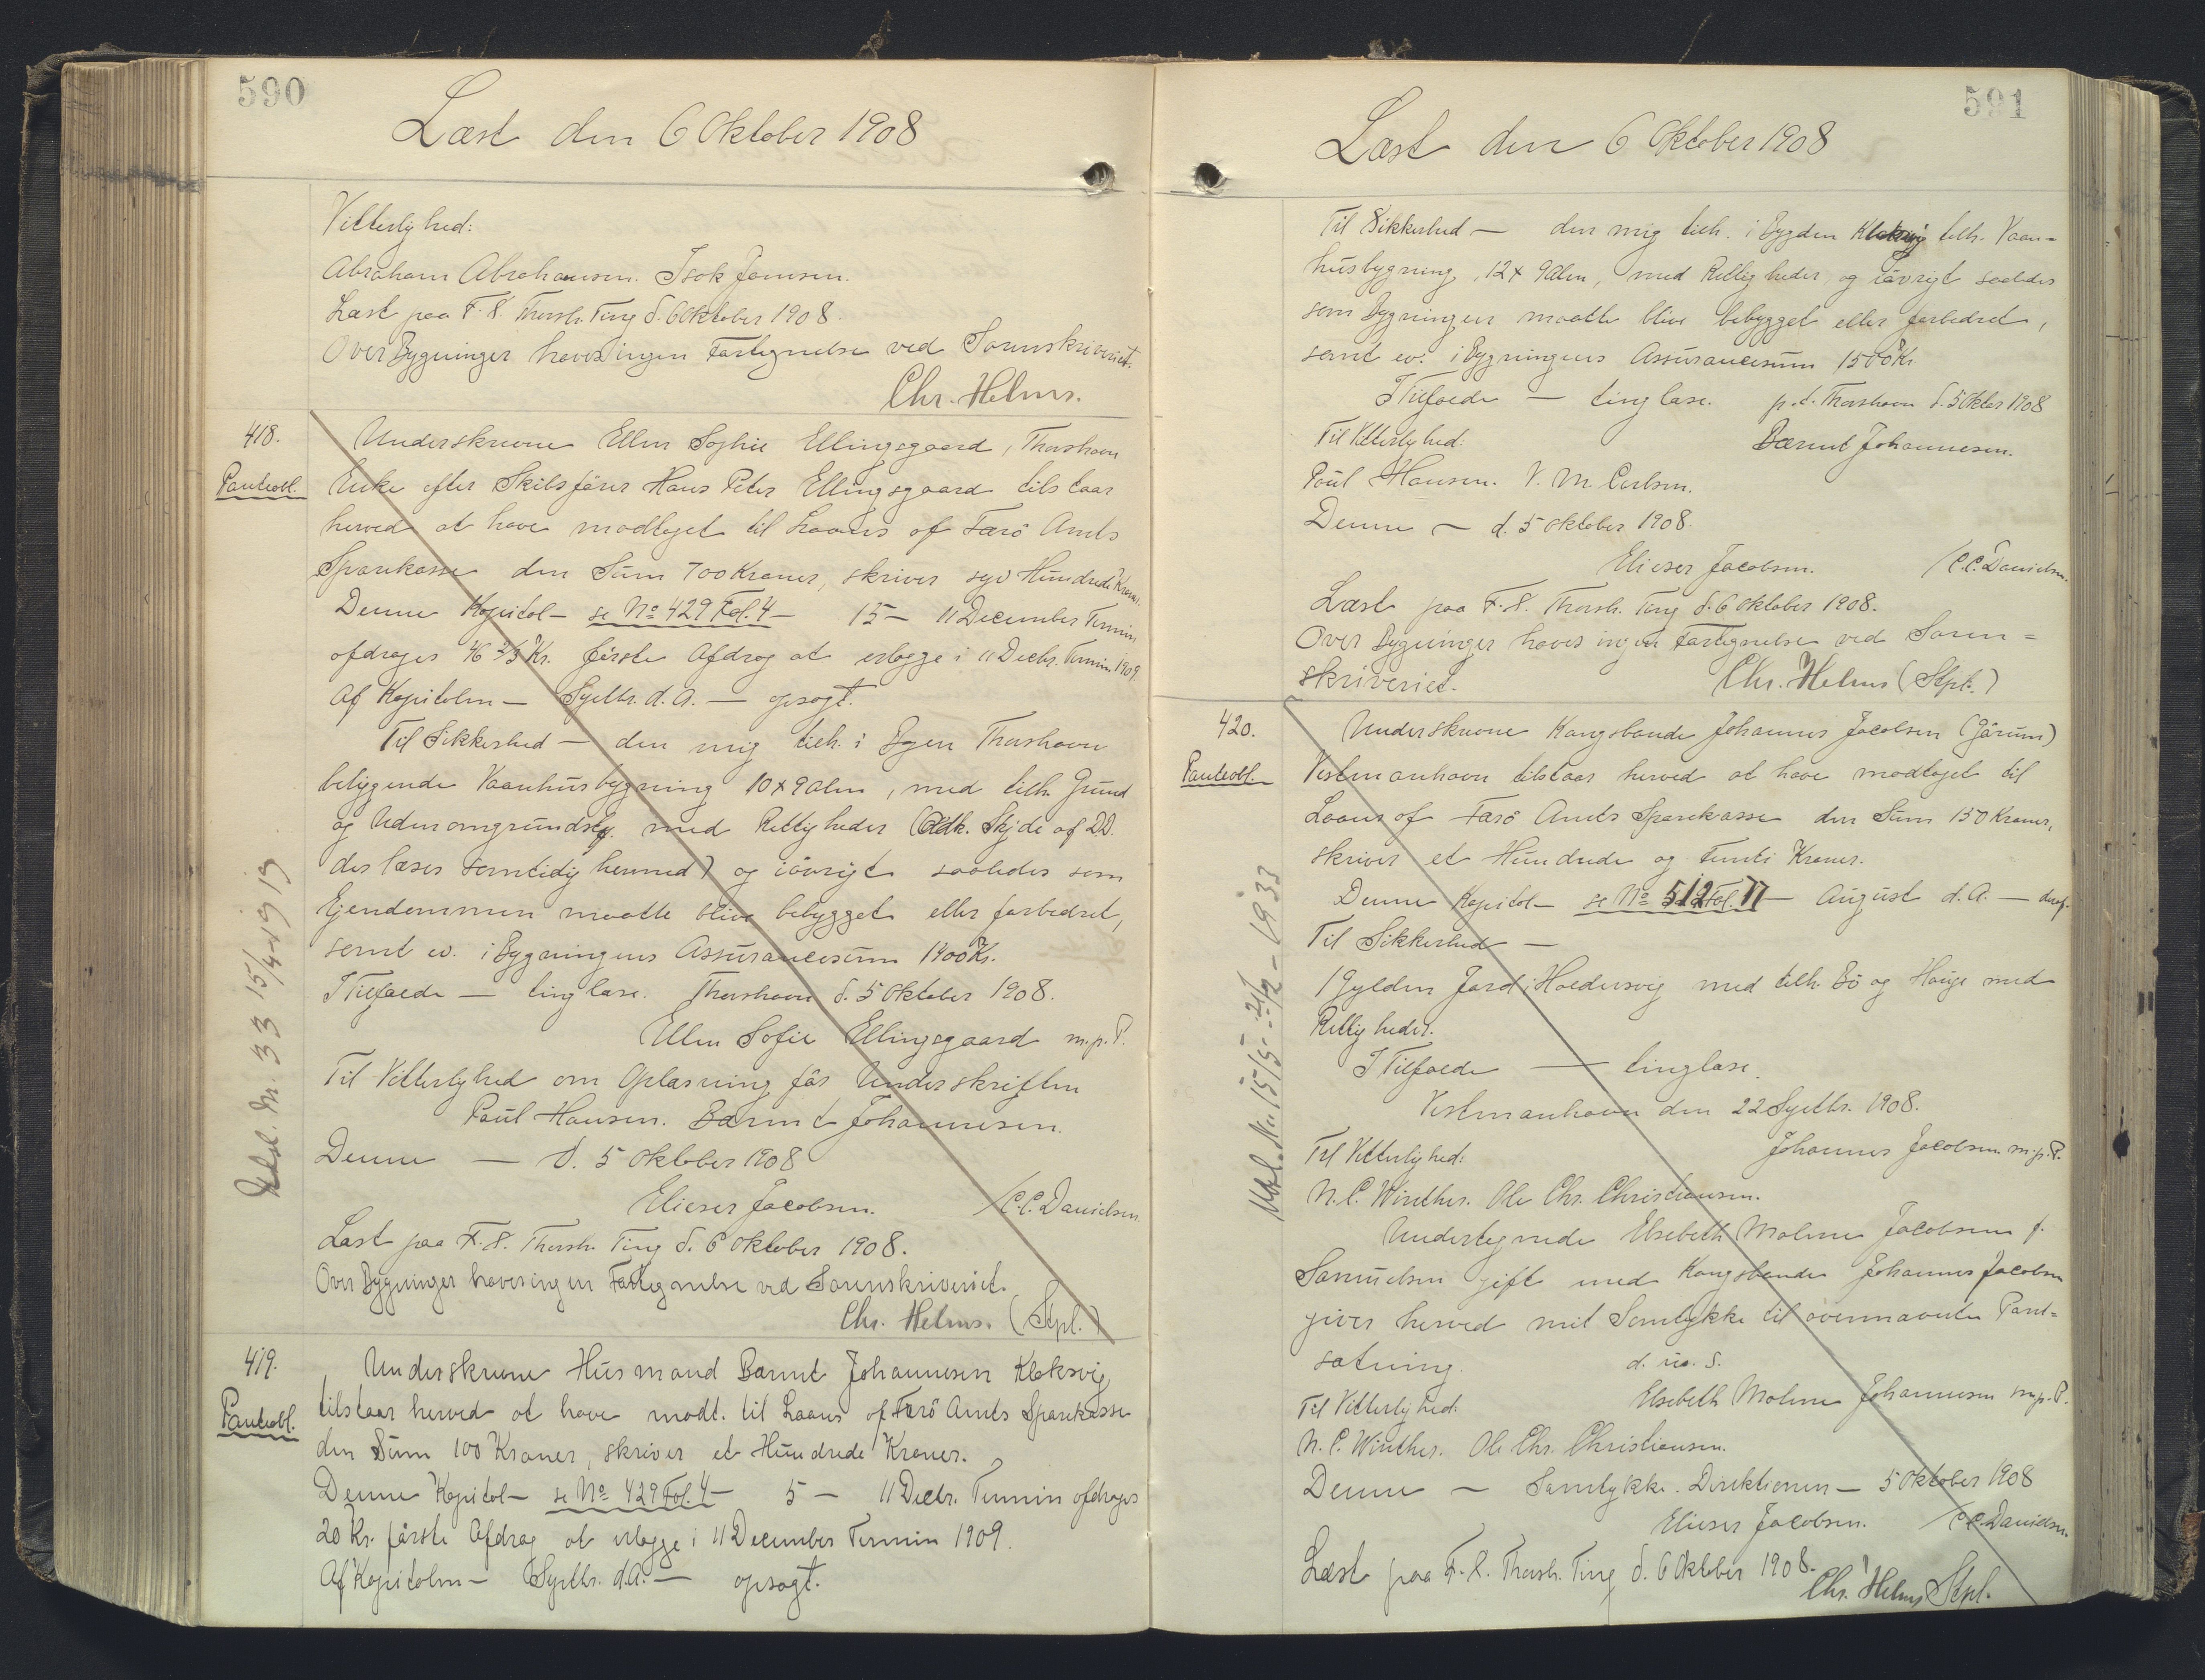 590
Læst den 6 Oktober 1908
Vitterlighed:
Abraham Abrahamsen. Isak Joensen.
Læst paa F. S. Thorsh. Ting d. 6 Oktober 1908.
Over Bygninger haves ingen Fortegnelse ved Sorenskriveriet.
Chr. Helms.
418.
Panteobl.
Underskrevne Ellen Sophie Ellingsgaard, Thorshavn
Enke efter Skibsfører Hans Peter Ellingsgaard tilstaar
herved at have modtaget til Laans af Færø Amts
Sparekasse den Sum 700 Kroner, skriver syv Hundrede Kroner.
Denne Kapital — se No 429 Fol. 4 — 15 — 11 December Termin
afdrages 46 2/3 Kr. første Afdrag at erlægge i 11 Decbr. Termin 1909.
Af Kapitalen — Septbr. d. A. — opsagt.
Til Sikkerhed — den mig tilh. i Byen Thorshavn
beliggende Vaanhusbygning 10 x 9 Alen, med tilh. Grund
og Udenomsgrundstk. med Rettigheder (Adk. Skjøde af DD.
der læses samtidig hermed) og iøvrigt saaledes som
Ejendommen maatte blive bebygget eller forbedret,
samt ev. i Bygningens Assurancesum 1400 Kr.
I Tilfælde — tinglæse. Thorshavn d. 5 Oktober 1908.
Ellen Sofie Ellingsgaard m. p. P.
Til Vitterlighed om Oplæsning før Underskriften
Paul Hansen. Bærint Johannesen.
Denne — d. 5 Oktober 1908
Elieser Jacobsen. / C. C. Danielsen.
Læst paa F. S. Thorsh. Ting d. 6 Oktober 1908.
Over Bygninger haves ingen Fortegnelse ved Sorenskriveriet.
Chr. Helms. (Stpl.)
Udsl. Nr. 33 15/4 1919
419.
Panteobl.
Underskrevne Husmand Bærint Johannesen Klaksvig
tilstaar herved at have modt. til Laans af Færø Amts Sparekasse
den Sum 100 Kroner, skriver et Hundrede Kroner.
Denne Kapital — se No 429 Fol. 4 — 5 — 11 Decbr. Termin afdrages
20 Kr. første Afdrag at erlægge i 11 December Termin 1909.
Af Kapitalen — Septbr. d. A. — opsagt.
591
Læst den 6 Oktober 1908
Til Sikkerhed — den mig tilh. i Bygden Klaksvig belh. Vaan-
husbygning, 12 x 9 Alen, med Rettigheder, og iøvrigt saaledes
som Bygningen maatte blive bebygget eller forbedret,
samt ev. i Bygningens Assurancesum 1500 Kr.
I Tilfælde — tinglæse. p. t. Thorshavn d. 5 Oktbr 1908
Til Vitterlighed: Bærint Johannesen.
Poul Hansen. V. M. Carlsen.
Denne — d. 5 Oktober 1908.
Elieser Jacobsen. / C. C. Danielsen.
Læst paa F. S. Thorsh. Ting d. 6 Oktober 1908.
Over Bygninger haves ingen Fortegnelse ved Soren=
skriveriet. Chr. Helms (Stpl.)
420.
Panteobl.
Underskrevne Kongsbonde Johannes Jacobsen (Gørum)
Vestmanhavn tilstaar herved at have modtaget til
Laans af Færø Amts Sparekasse den Sum 150 Kroner,
skriver et Hundrede og Femti Kroner.
Denne Kapital — se No 512 Fol. 77 — August d. A. —
Til Sikkerhed —
1 Gylden Jord i Haldersvig med tilh. Bø og Hauge med
Rettigheder.
I Tilfælde — tinglæse.
Vestmanhavn den 22 Septbr. 1908.
Til Vitterlighed: Johannes Jacobsen m. p. P.
N. C. Winther. Ole Chr. Christiansen.
Undertegnede Elsebeth Malene Jacobsen f.
Samuelsen gift med Kongsbonde Johannes Jacobsen
giver herved mit Samtykke til ovennævnte Pant=
sætning. d. u. s.
Til Vitterlighed: Elsebeth Malene Johannesen m. p. P.
N. C. Winther. Ole Chr. Christiansen.
Denne — Samtykke. Direktionen — 5 Oktober 1908
Elieser Jacobsen. / C. C. Danielsen.
Læst paa F. S. Thorsh. Ting d. 6 Oktober 1908.
Chr. Helms Stpl.